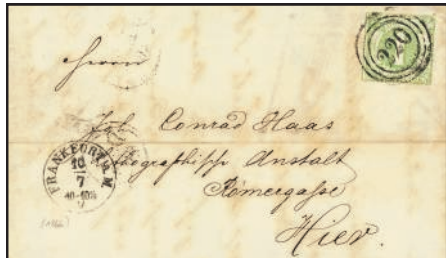 220
Herrn
Joh. Conrad Haas
Lithographische Anstalt
Römergasse
Hier.
FRANKFURT A. M.
10
7